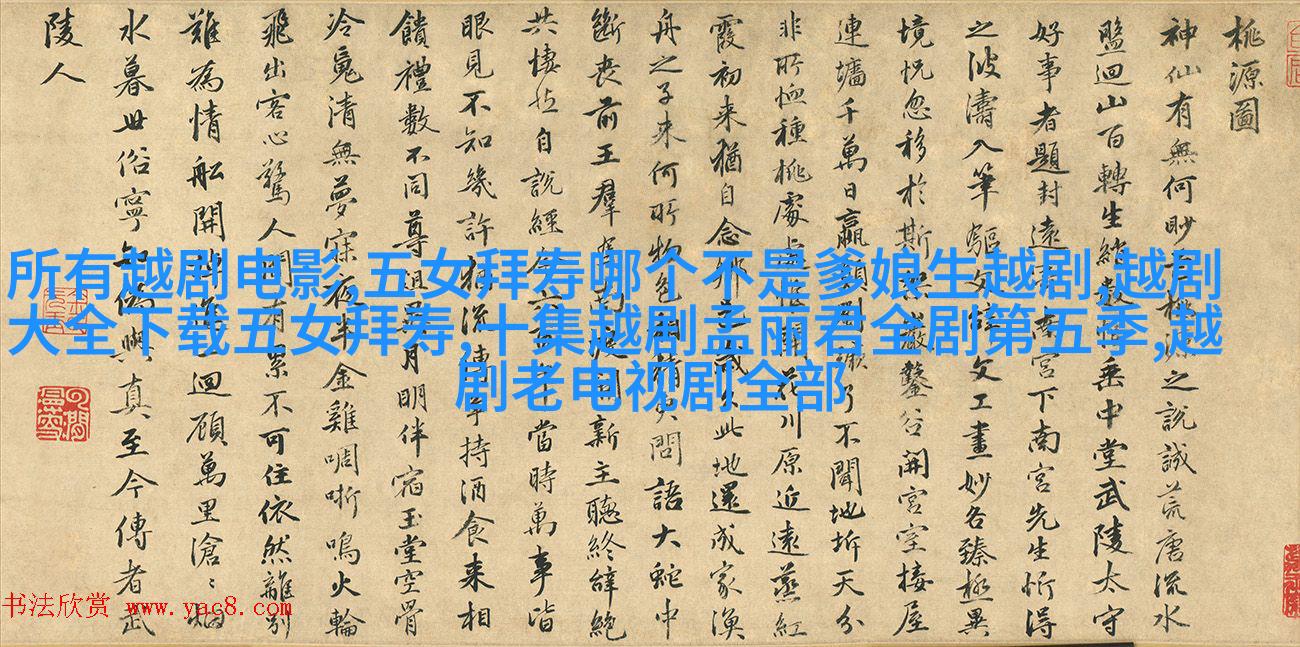 桃源圖
神仙有無何眇桃源之說誠荒唐流水
盤迴山百轉生綃數垂中堂武陵太守
好事者題封遠南宮下南宮先生忻得
之波濤入筆驅文辭文工畫妙各臻極異
境恍忽移於斯巖鑿谷開宮室接屋
連墻千萬日嬴顛劉蹶了不聞地坼天分
非所恤種桃處處惟開花川原近遠蒸紅
霞初来猶自念鄉邑歲久此地還成家漁
舟之子来何所物色相猜更問語大蛇中
斷喪前王羣馬南渡開新主聽終辞絕
共悽然自說經今六百年當時萬事皆
眼見不知幾許猶流傳爭持酒食来相
饋禮數不同尊俎異月明伴宿玉堂空骨
冷魂清無夢寐夜半金雞啁哳鳴火輪
飛出客心驚人間有累不可住依然離別
難為情船開棹進一迴顧萬里滄〻烟
水暮世俗寧知偽與真至今傳者武
陵人
所有越剧电影,五女拜寿哪个不是爹娘生越剧,越剧
大全下载五女拜寿,十集越剧孟丽君全剧第五季,越
剧老电视剧全部
书法欣赏 www.yac8.com